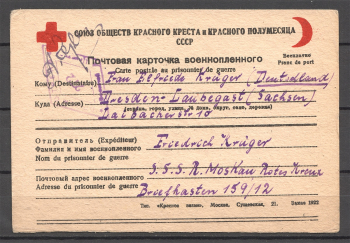 СОЮЗ ОБЩЕСТВ КРАСНОГО КРЕСТА и КРАСНОГО ПОЛУМЕСЯЦА
СССР
Почтовая карточка военнопленного
Carte postale du prisonnier de guerre
Бесплатно
Franc de port
Кому (Destinataire) Frau Elfriede Krüger (Deutschland)
Куда (Adresse) Dresden-Laubegast (Sachsen)
(страна, город, улица, № дома, округ, село, деревня)
Laibacherstr 18
Отправитель (Expéditeur) Friedrich Krüger
Фамилия и имя военнопленного
Nom du prisonnier de guerre
Почтовый адрес военнопленного S.S.S.R. Moskau Rotes Kreuz
Adresse du prisonnier de guerre Briefkasten 159/12
Тип. «Красное знамя», Москва, Сущевская, 21. Заказ 1922